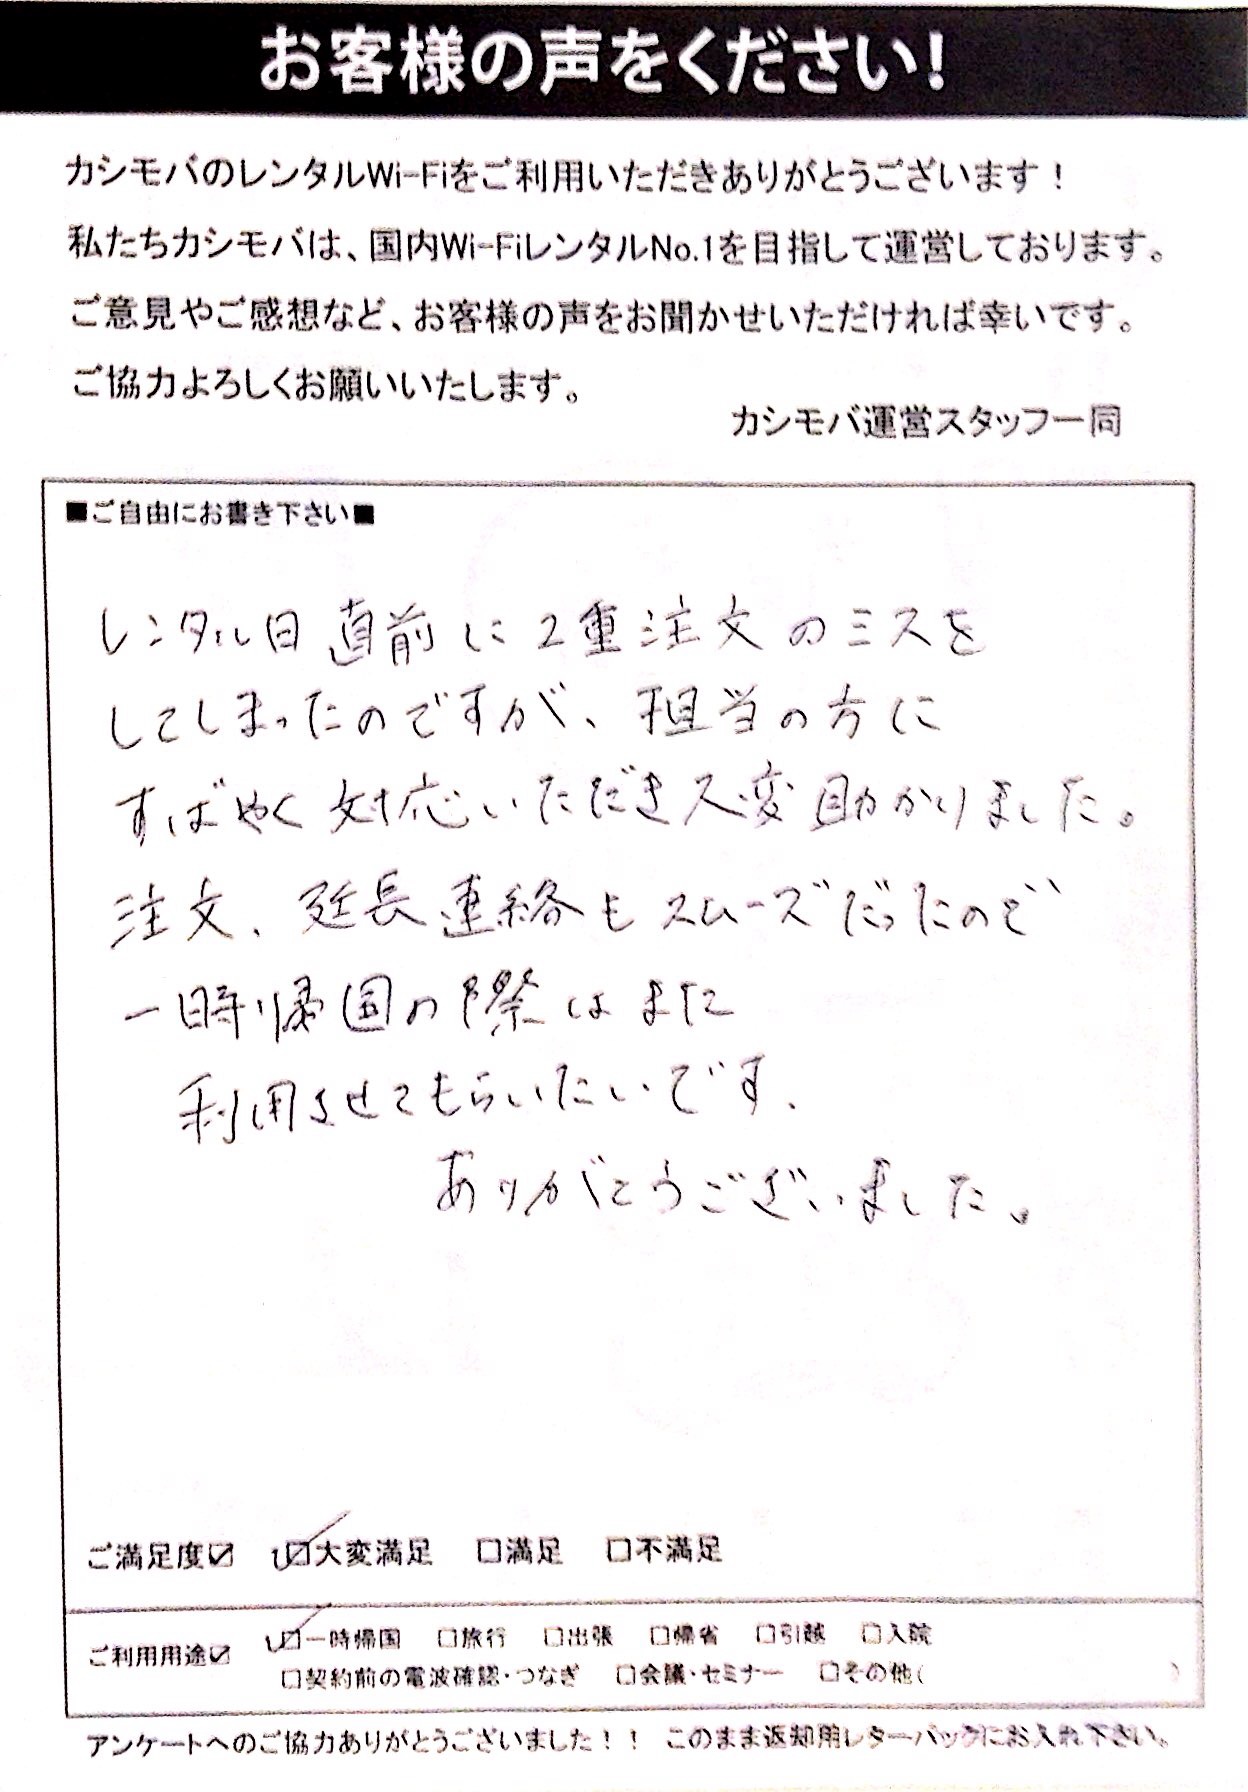 お客様の声をください!
カシモバのレンタルWi-Fiをご利用いただきありがとうございます!
私たちカシモバは、国内Wi-FiレンタルNo.1を目指して運営しております。
ご意見やご感想など、お客様の声をお聞かせいただければ幸いです。
ご協力よろしくお願いいたします。
カシモバ運営スタッフ一同
■ご自由にお書き下さい■
レンタル日直前に2重注文のミスを
してしまったのですが、担当の方に
すばやく対応いただき大変助かりました。
注文、延長連絡もスムーズだったので
一時帰国の際はまた
利用させてもらいたいです.
ありがとうございました。
ご満足度☑ ☑大変満足 □満足 □不満足
ご利用用途☑ ☑一時帰国 □旅行 □出張 □帰省 □引越 □入院
□契約前の電波確認・つなぎ □会議・セミナー □その他( )
アンケートへのご協力ありがとうございました!! このまま返却用レターパックにお入れ下さい。